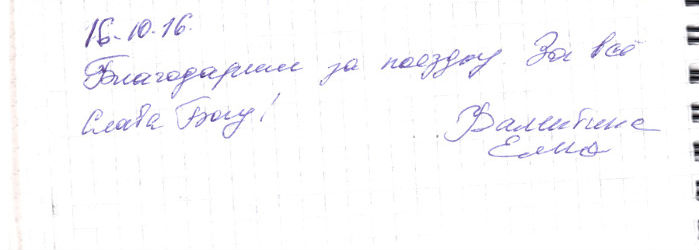 16.10.16.
Благодарим за поездку. За всё
Слава Богу!
Валентина